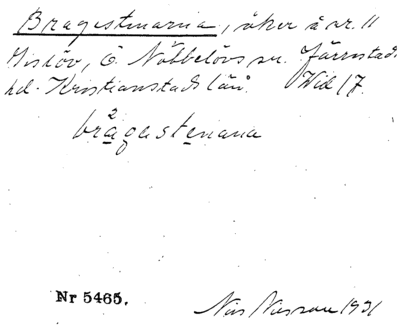 Bragestenarna, åker å nr. 11
Gislöv, Ö. Nöbbelövs sn. Järrestads
hd. Kristianstads län. Wid 17.
brågestenana
Nr 5465.
Nils Nilsson 1931